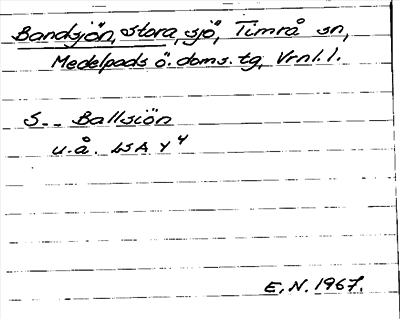 Bandsjön, stora, sjö, Timrå sn,
Medelpads ö. doms. tg, Vrnl. l.
S-- Ballsiön
u.å. LSA Y 4
E, N. 1967.